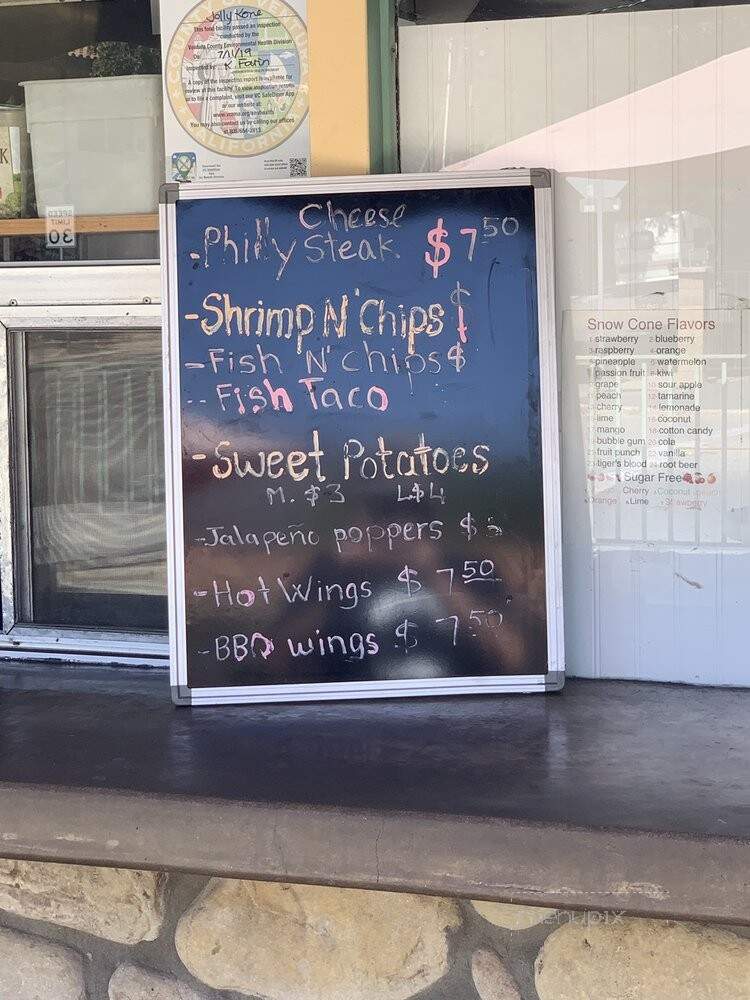 Jolly Kone
This food facility passed an inspection
conducted by the
Ventura County Environmental Health Division
On 7/11/19
Inspected by K. Farin
A copy of the inspection report is available for
review at this facility. To view inspection results
or to file a complaint, visit our VC SafeDiner App
or our website at
You may also contact us by calling our offices
at 805/654-2813
CALIFORNIA
SPEED
LIMIT
30
Cheese
-Philly Steak $7 50
-Shrimp N' Chips $
-Fish N' chips $
-- Fish Taco
-Sweet Potatoes
M. $3 L $4
-Jalapeño poppers $
-Hot Wings $ 7 50
-BBQ wings $ 7 50
Snow Cone Flavors
strawberry 2 blueberry
raspberry orange
pineapple watermelon
passion fruit kiwi
grape 10 sour apple
peach 12 tamarine
cherry 14 lemonade
lime 16 coconut
mango 18 cotton candy
bubble gum 20 cola
fruit punch vanilla
tiger's blood root beer
Sugar Free
Cherry Coconut peach
Orange Lime Strawberry
menupix